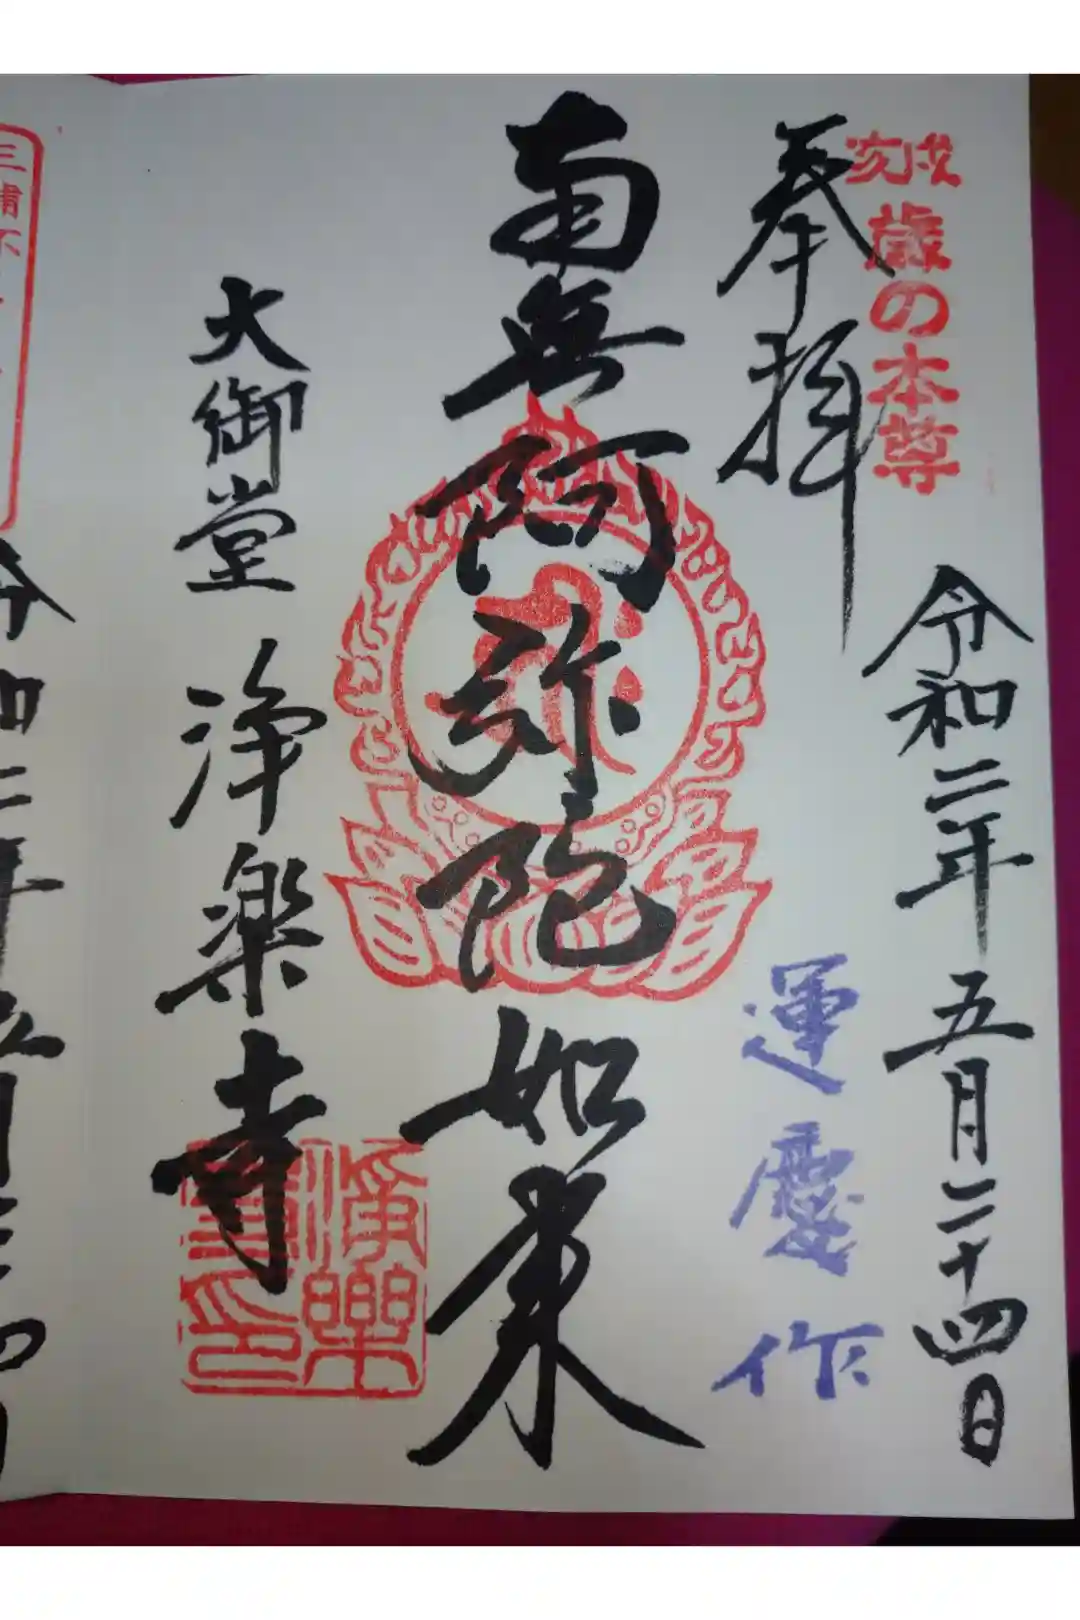 戌亥歳の本尊
奉拝
令和二年五月二十四日
運慶作
南無阿弥陀如来
大御堂 浄楽寺
浄樂寺印
三浦不
令和二年五月二十四日